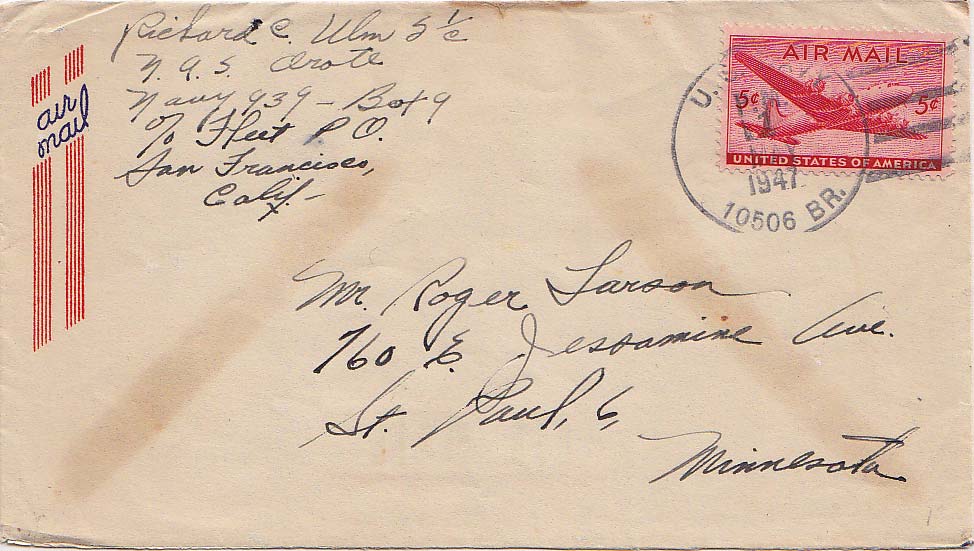 Richard C. Ulm S 1/c
N.A.S. Orote
Navy 939 - Box 9
c/o Fleet P.O.
San Francisco,
Calif. -
air
mail
AIR MAIL
5¢ 5¢
UNITED STATES OF AMERICA
U.
1947
10506 BR.
Mr. Roger Larson
760 E. Jessamine Ave.
St. Paul, 6,
Minnesota